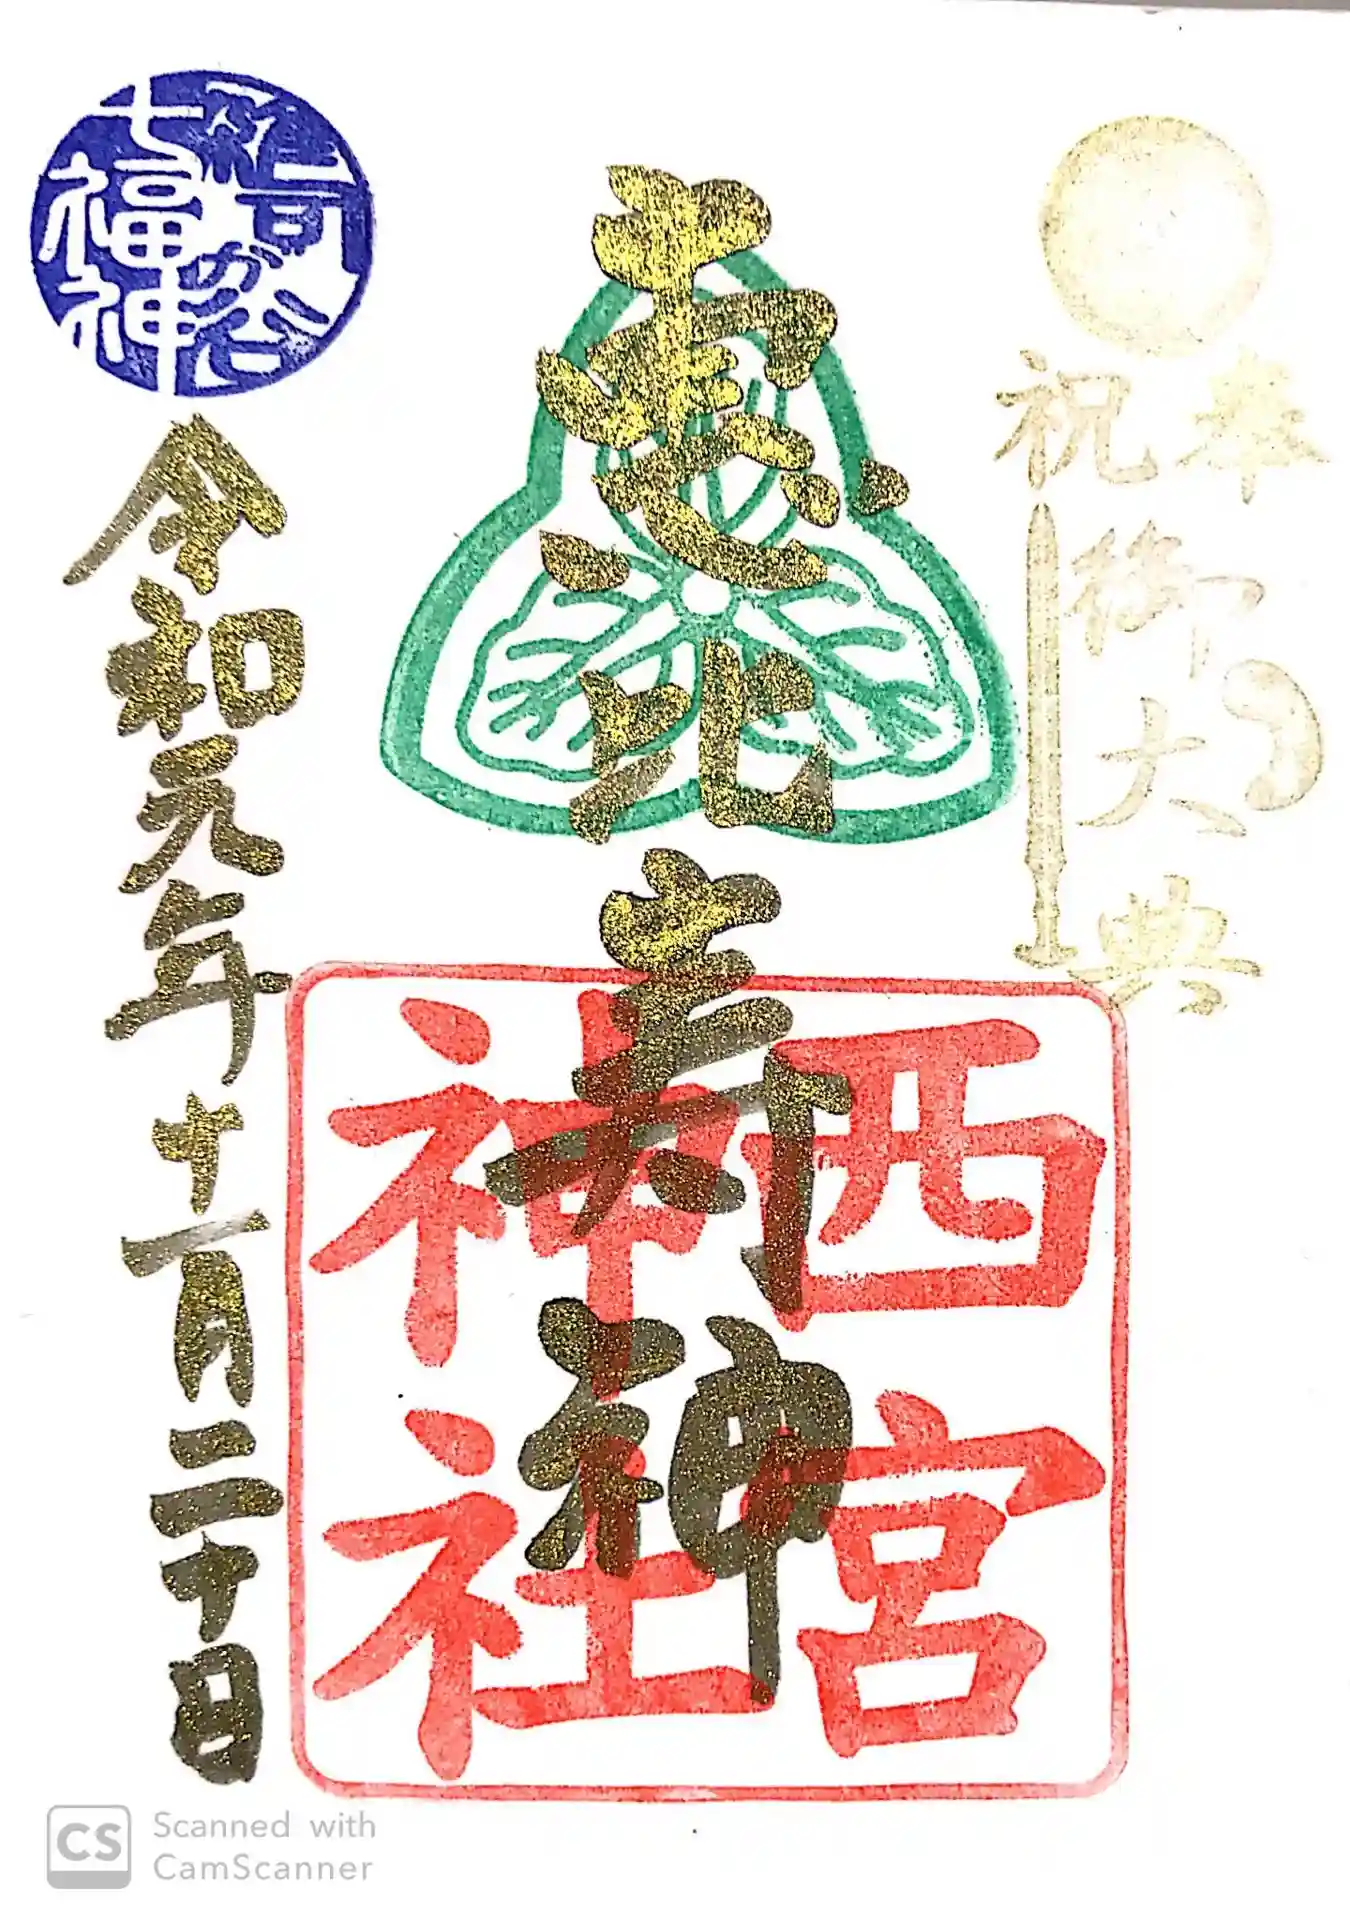 奉祝
御大典
恵比寿神
西宮
神社
雑司が谷
七福神
令和元年十一月二十日
CS
Scanned with
CamScanner